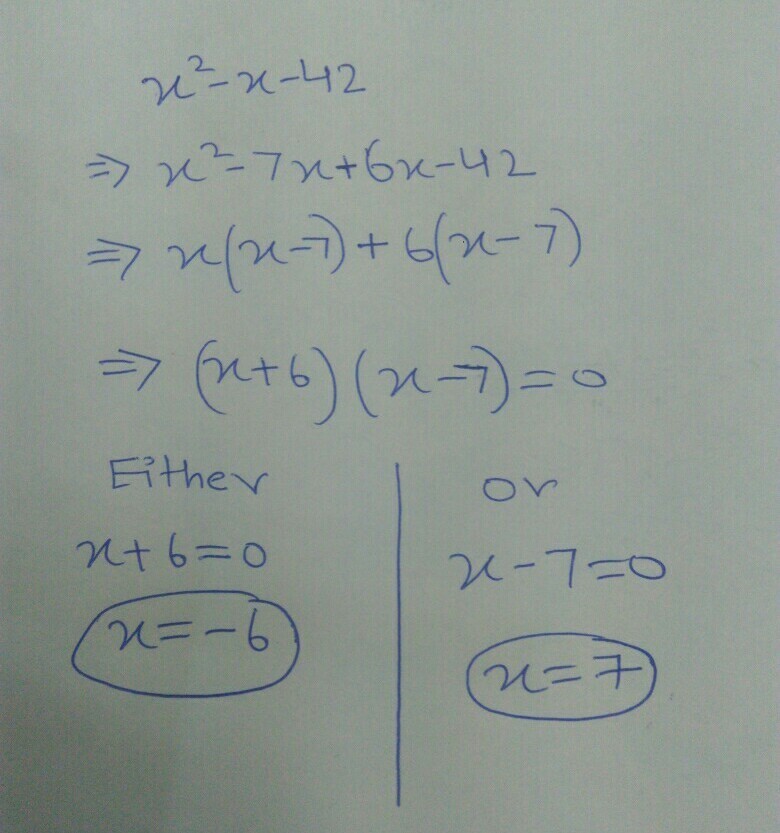 x²-x-42
⇒ x²-7x+6x-42
⇒ x(x-7)+6(x-7)
⇒ (x+6)(x-7)=0
Either
x+6=0
x=-6
or
x-7=0
x=7